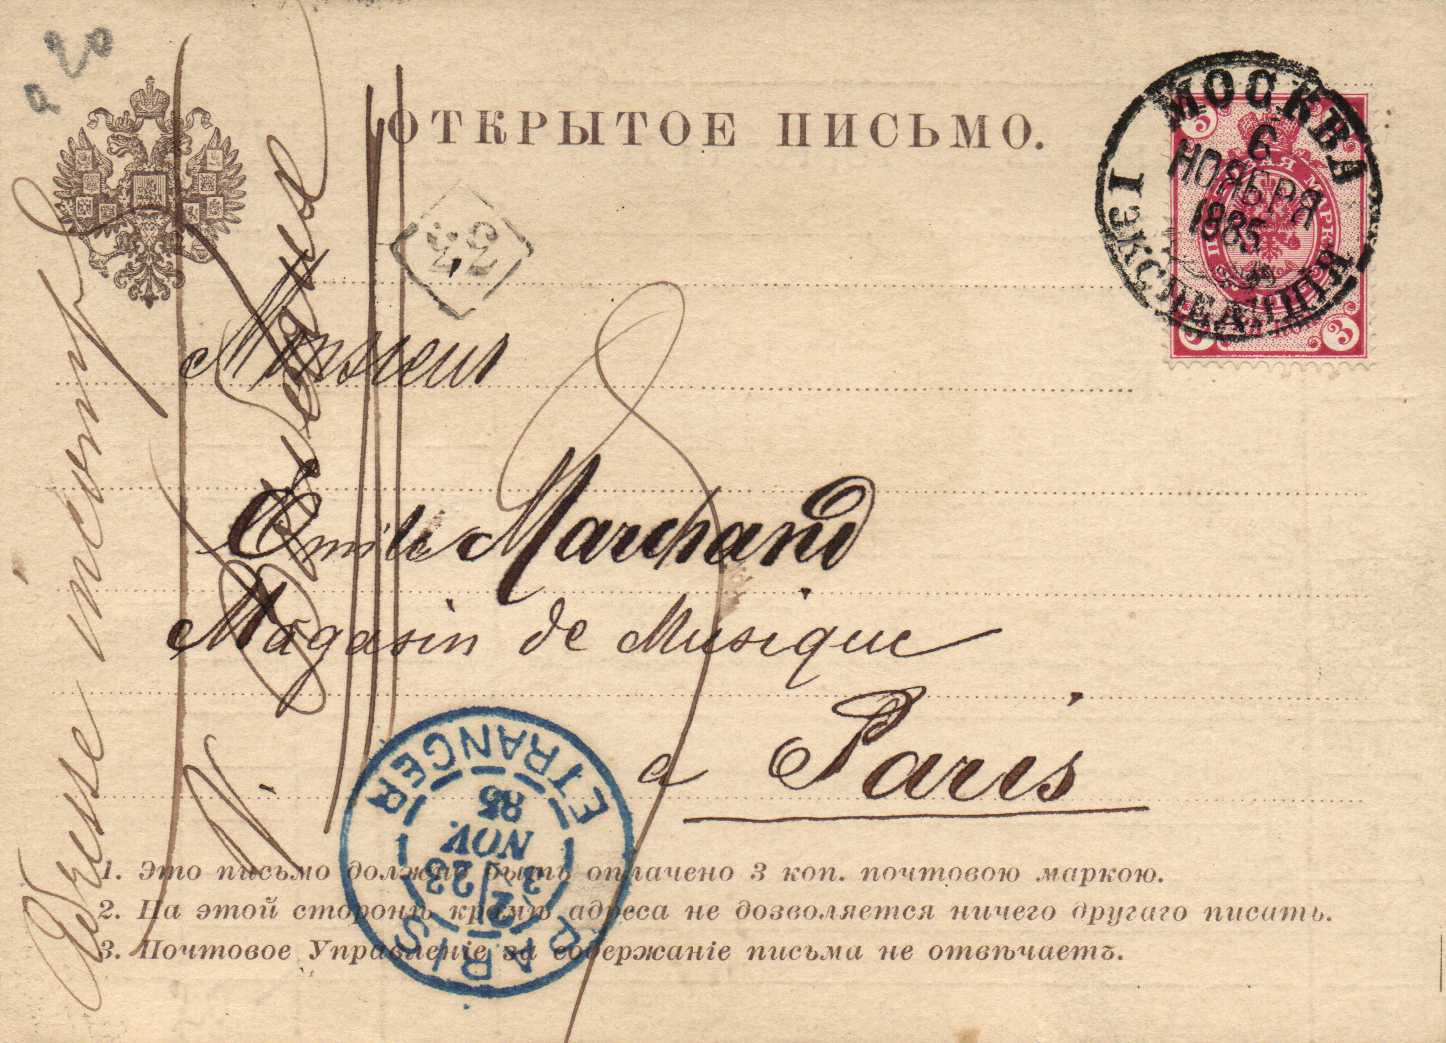 a 20
ОТКРЫТОЕ ПИСЬМО.
МОСКВА
6
НОЯБРЯ
1885
I ЭКСПЕДИЦІЯ
3
3
3
33
Monsieur
Emile Marchand
Magasin de Musique
a Paris
Adresse incompl
PARIS ETRANGER
23
NOV.
85
1. Это письмо должно быть оплачено 3 коп. почтовою маркою.
2. На этой сторонѣ кромѣ адреса не дозволяется ничего другаго писать.
3. Почтовое Управленіе за содержаніе письма не отвѣчаетъ.